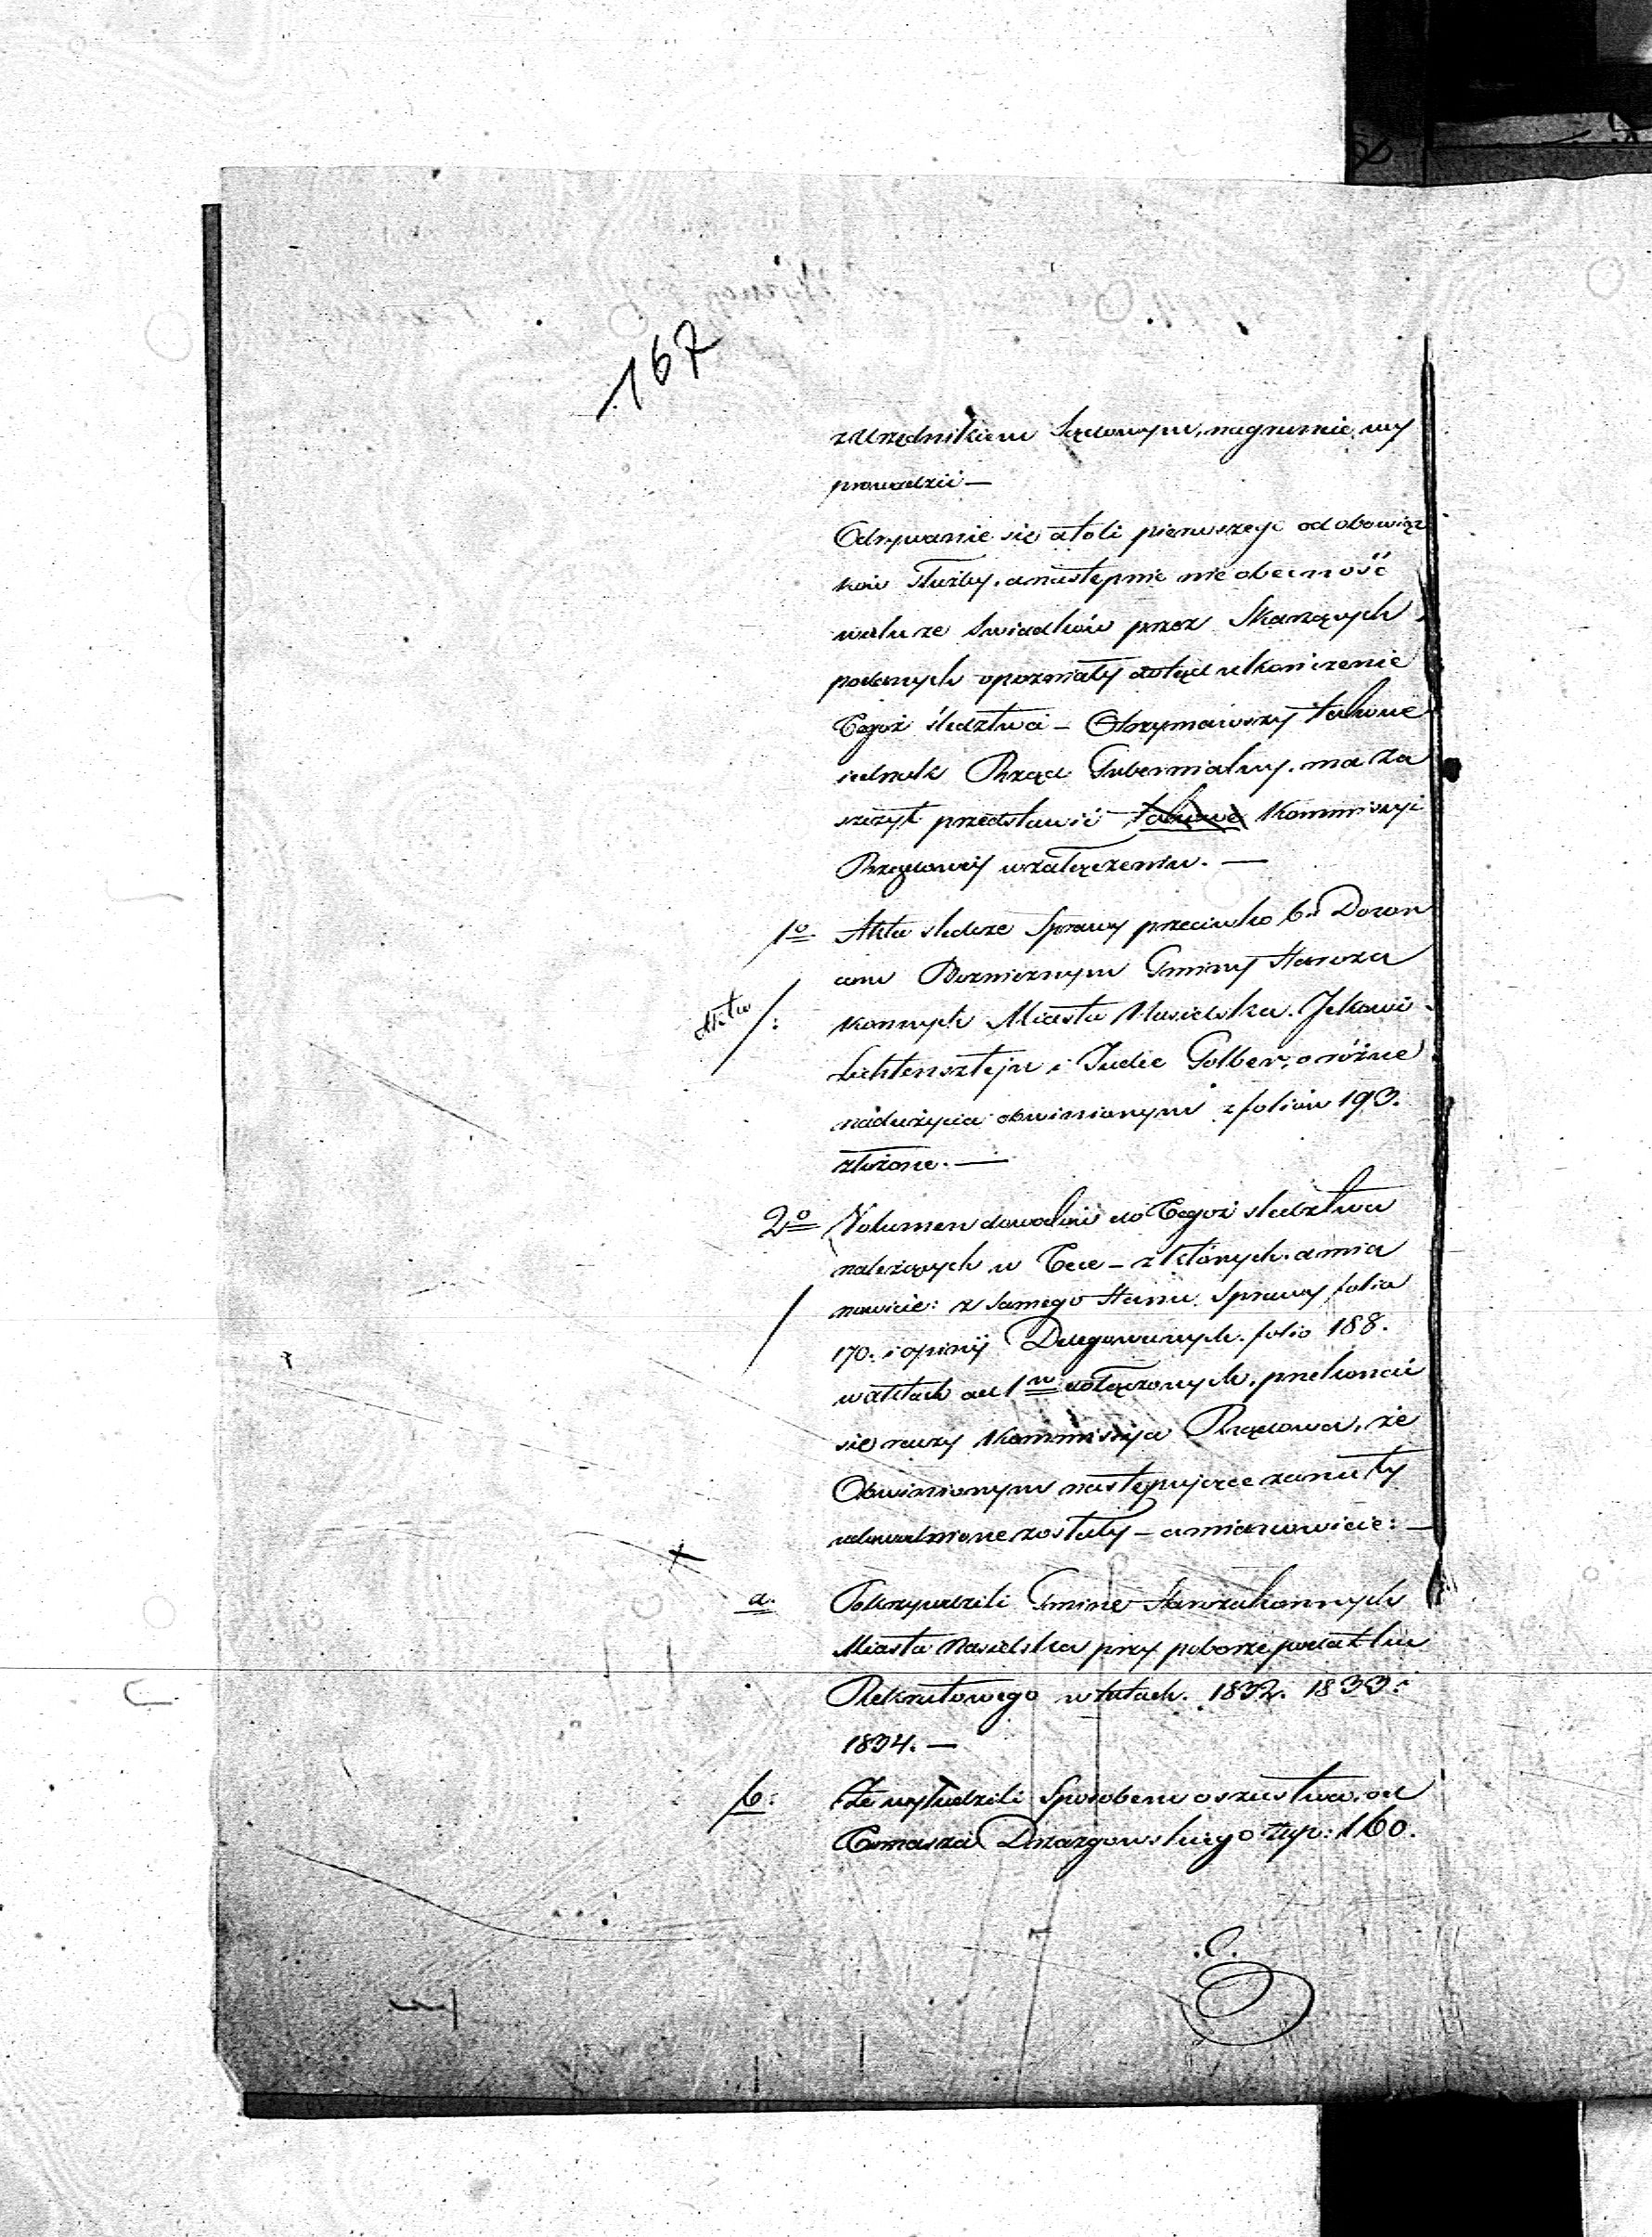 167
z Urzędnikiem Sądowym, na gruncie, wy
prowadzić —
Odrywanie się atoli pierwszego od obowiąz
ków służby, a następnie nieobecność
wielu ze świadków przez Skarżących
podanych opozniały dotąd ukończenie
Tegoż śledztwa — Otrzymawszy takowe
iednak Rząd Gubernialny, ma za
szczyt przedstawić takowe Kommissyi
Rządowéy w załączeniu. —
1o Akta śledcze Sprawy przeciwko b. Dozor
com Bożnicznym Gminy Staroza
Akta
konnych Miasta Nasielska. Jckowi
Lichtensztejn i Judce Golber, o różne
nadużycia obwinionym z foliów 193.
złożone. —
2o Volumen dowodów do Tegoż śledztwa
należących w Tece — z których, a mia
nowicie: z samego Stanu Sprawy folio
170. i opinij Delegowanych. folio 188.
w aktach ad 1m dołączonych. przekonać
się raczy Kommissyja Rządowa, że
Obwinionym następujące zarzuty
udowodnione zostały — a mianowicie: —
a. Pokrzywdzili Gminę Starozakonnych
Miasta Nasielska przy poborze podatku
Rekrutowego w latach. 1832. 1833.
1834. —
b: Że wyłudzili Sposobem oszustwa, od
Tomasza Drzazgowskiego złp: 160.